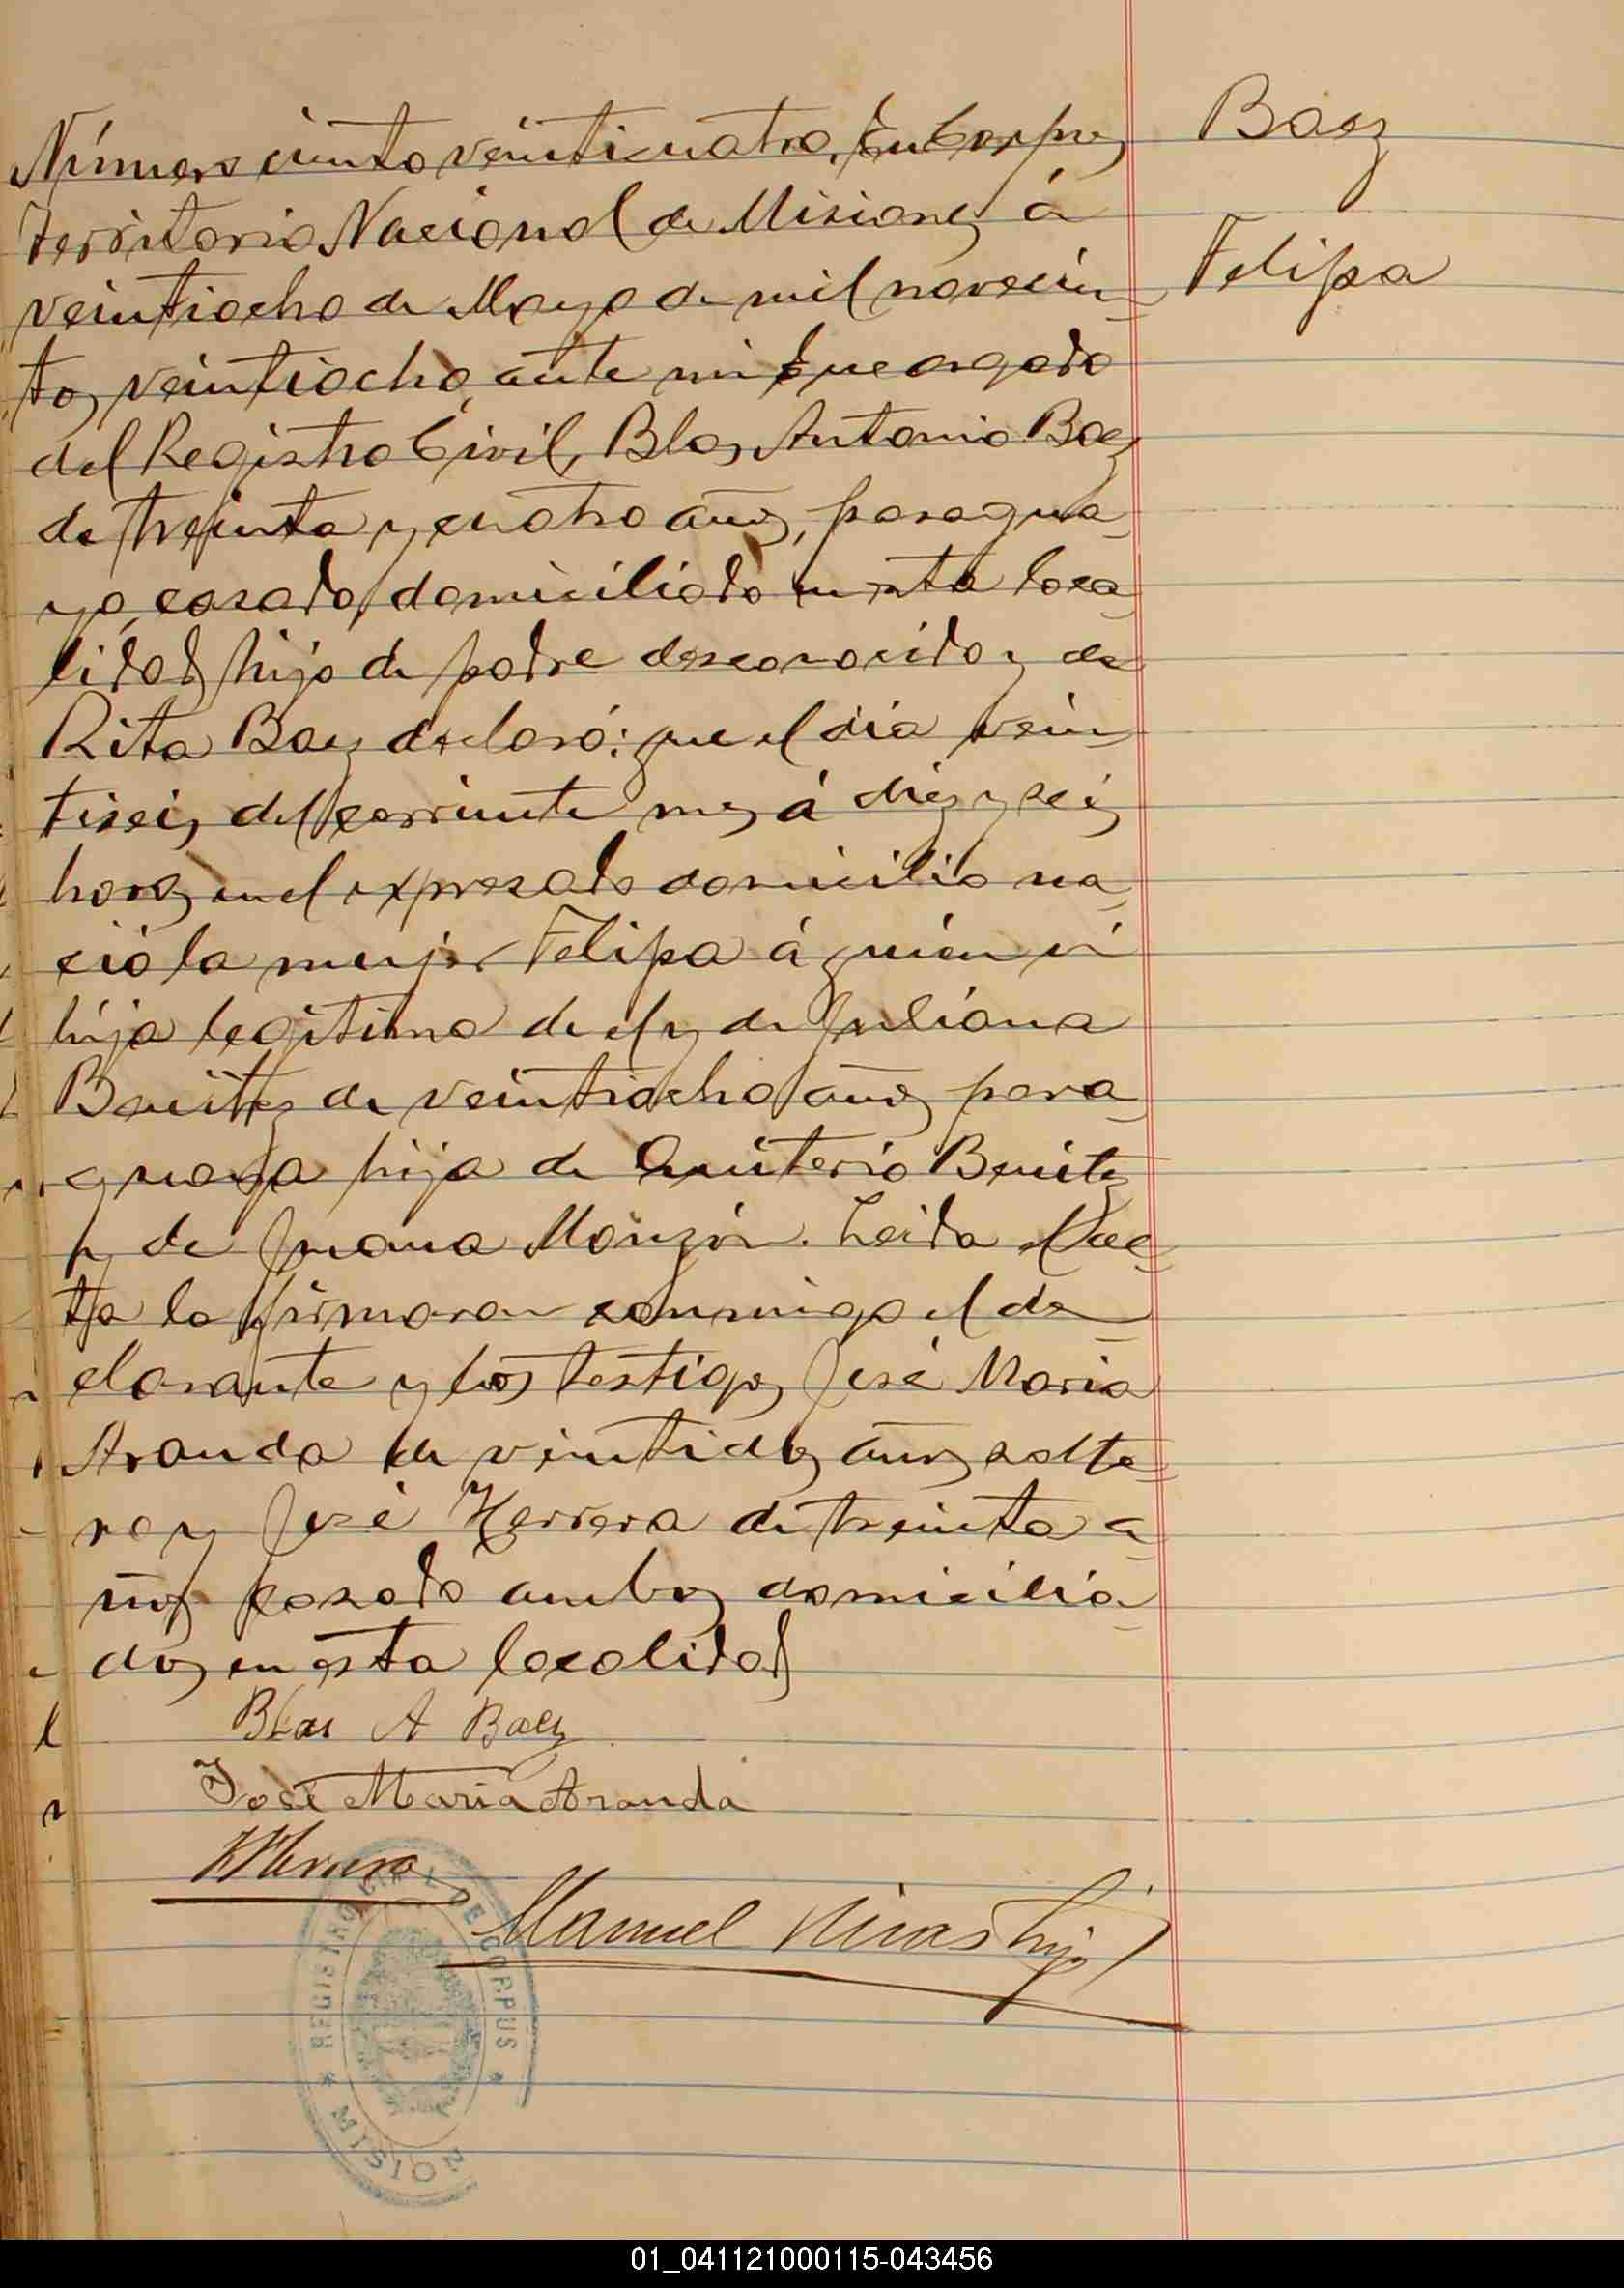 Baez
Felipa
Número ciento veinticuatro. En Corpus
Territorio Nacional de Misiones á
veintiocho de Mayo de mil novecien
tos veintiocho, ante mi Encargado
del Registro Civil, Blas Antonio Baez
de treinta y cuatro años, paragua
yo, casado, domiciliado en esta loca
lidad hijo de padre desconocido y de
Rita Baez declaró: que el dia vein
tiseis del corriente mes á diez y seis
horas en el expresado domicilio na
ció la mujer Felipa á quien vi
hija legítima de el y de Juliana
Benitez de veintiocho años para
guaya hija de Quiterio Benitez
y de Juana Monzón. Leida el ac
ta la firmaron conmigo el de
clarante y los testigos José Maria
Aranda de veintidos años solte
ro y José Herrera de treinta a
ños casado ambos domicilia
dos en esta localidad
Blas A Baez
José Maria Aranda
Herrera
Manuel hijo
REGISTRO CIVIL DE CORPUS
* MISIONES *
01_041121000115-043456